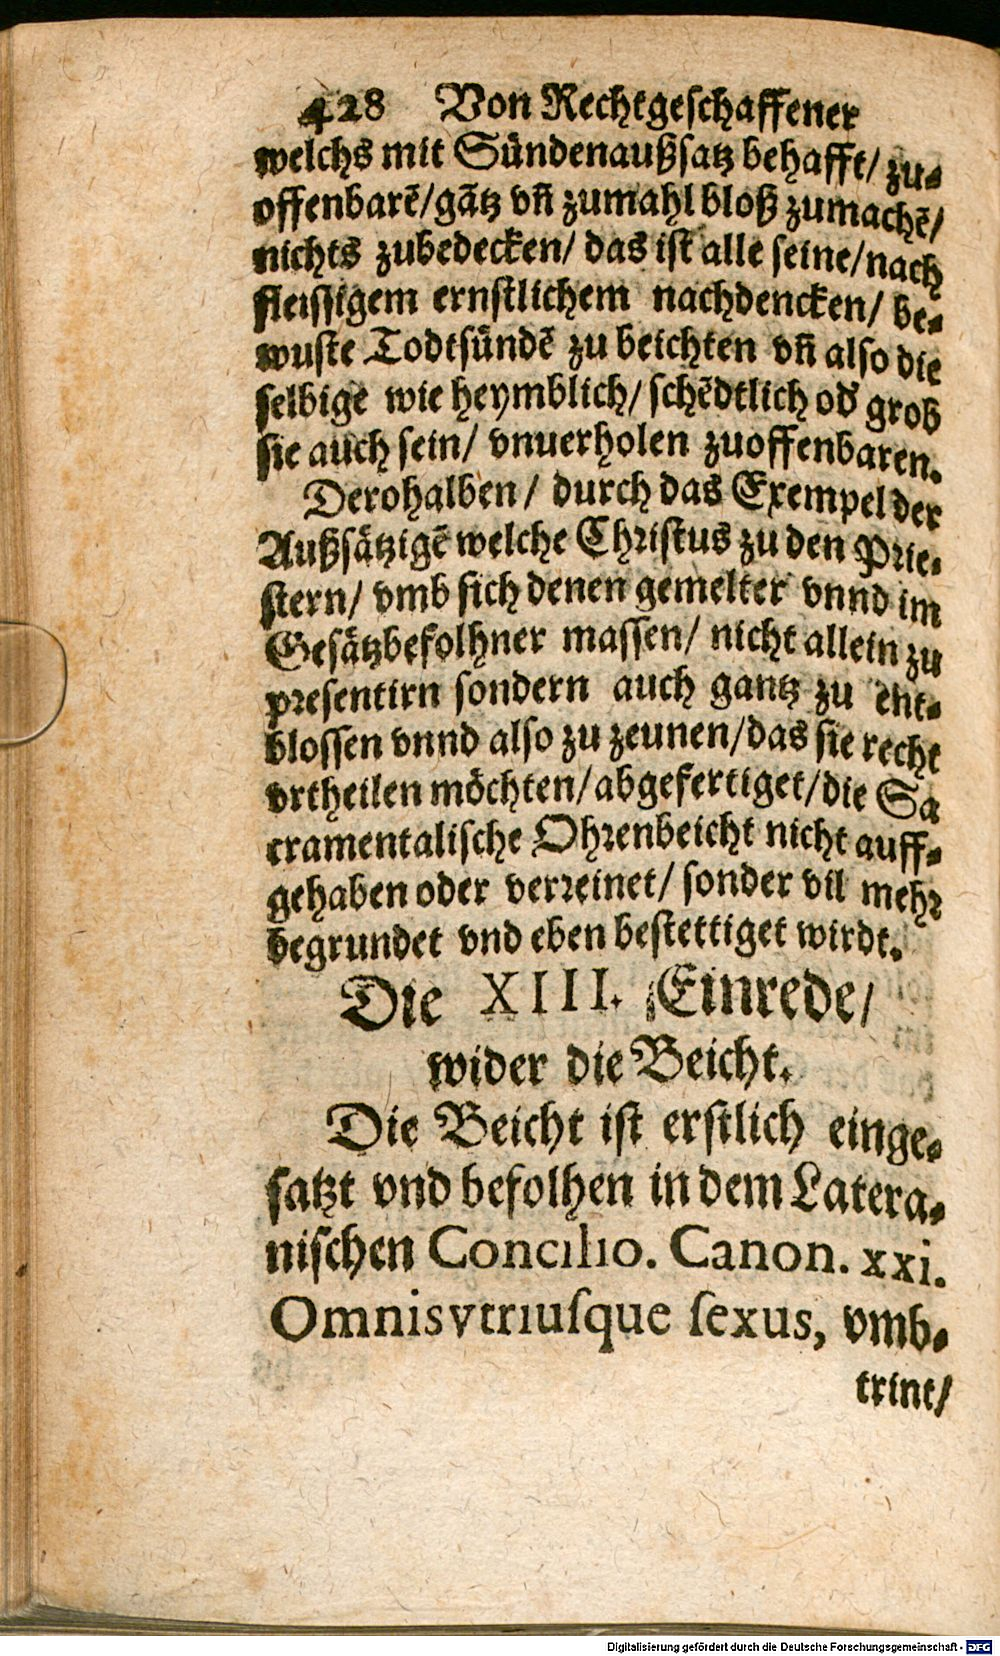 428 Von Rechtgeschaffener
welchs mit Sündenaußsatz behafft/ zu-
offenbarē/gātz vn̄ zumahl bloß zumachē/
nichts zubedecken/ das ist alle seine/nach
fleissigem ernstlichem nachdencken/ be-
wuste Todtsündē zu beichten vn̄ also die
selbige wie heymblich/ schēdtlich od' groß
sie auch sein/ vnuerholen zuoffenbaren.
Derohalben/ durch das Exempel der
Außsätzigē welche Christus zu den Prie-
stern/ vmb sich denen gemelter vnnd im
Gesätzbefolhner massen/ nicht allein zu
presentirn sondern auch gantz zu ent-
blossen vnnd also zu zeunen/das sie recht
vrtheilen möchten/abgefertiget/die Sa
cramentalische Ohrenbeicht nicht auff-
gehaben oder verreinet/ sonder vil mehr
begrundet vnd eben bestettiget wirdt.
Die XIII. Einrede/
wider die Beicht.
Die Beicht ist erstlich einge-
satzt vnd befolhen in dem Latera-
nischen Concilio. Canon. xxi.
Omnis vtriusque sexus, vmb-
trint/
Digitalisierung gefördert durch die Deutsche Forschungsgemeinschaft - DFG